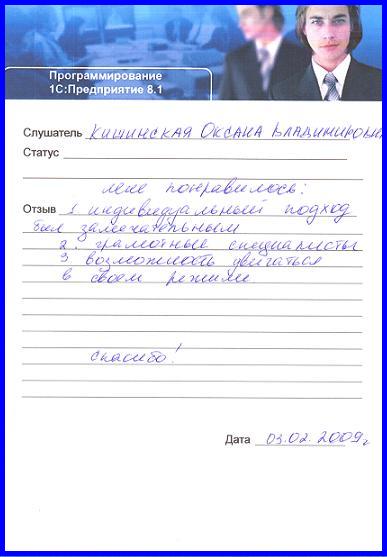 Программирование
1С:Предприятие 8.1
Слушатель Кишинская Оксана Владимировна
Статус
мне понравилось:
Отзыв 1 индивидуальный подход
был замечательным
2. грамотные специалисты
3 возможность двигаться
в своем режиме
спасибо!
Дата 03.02.2009г